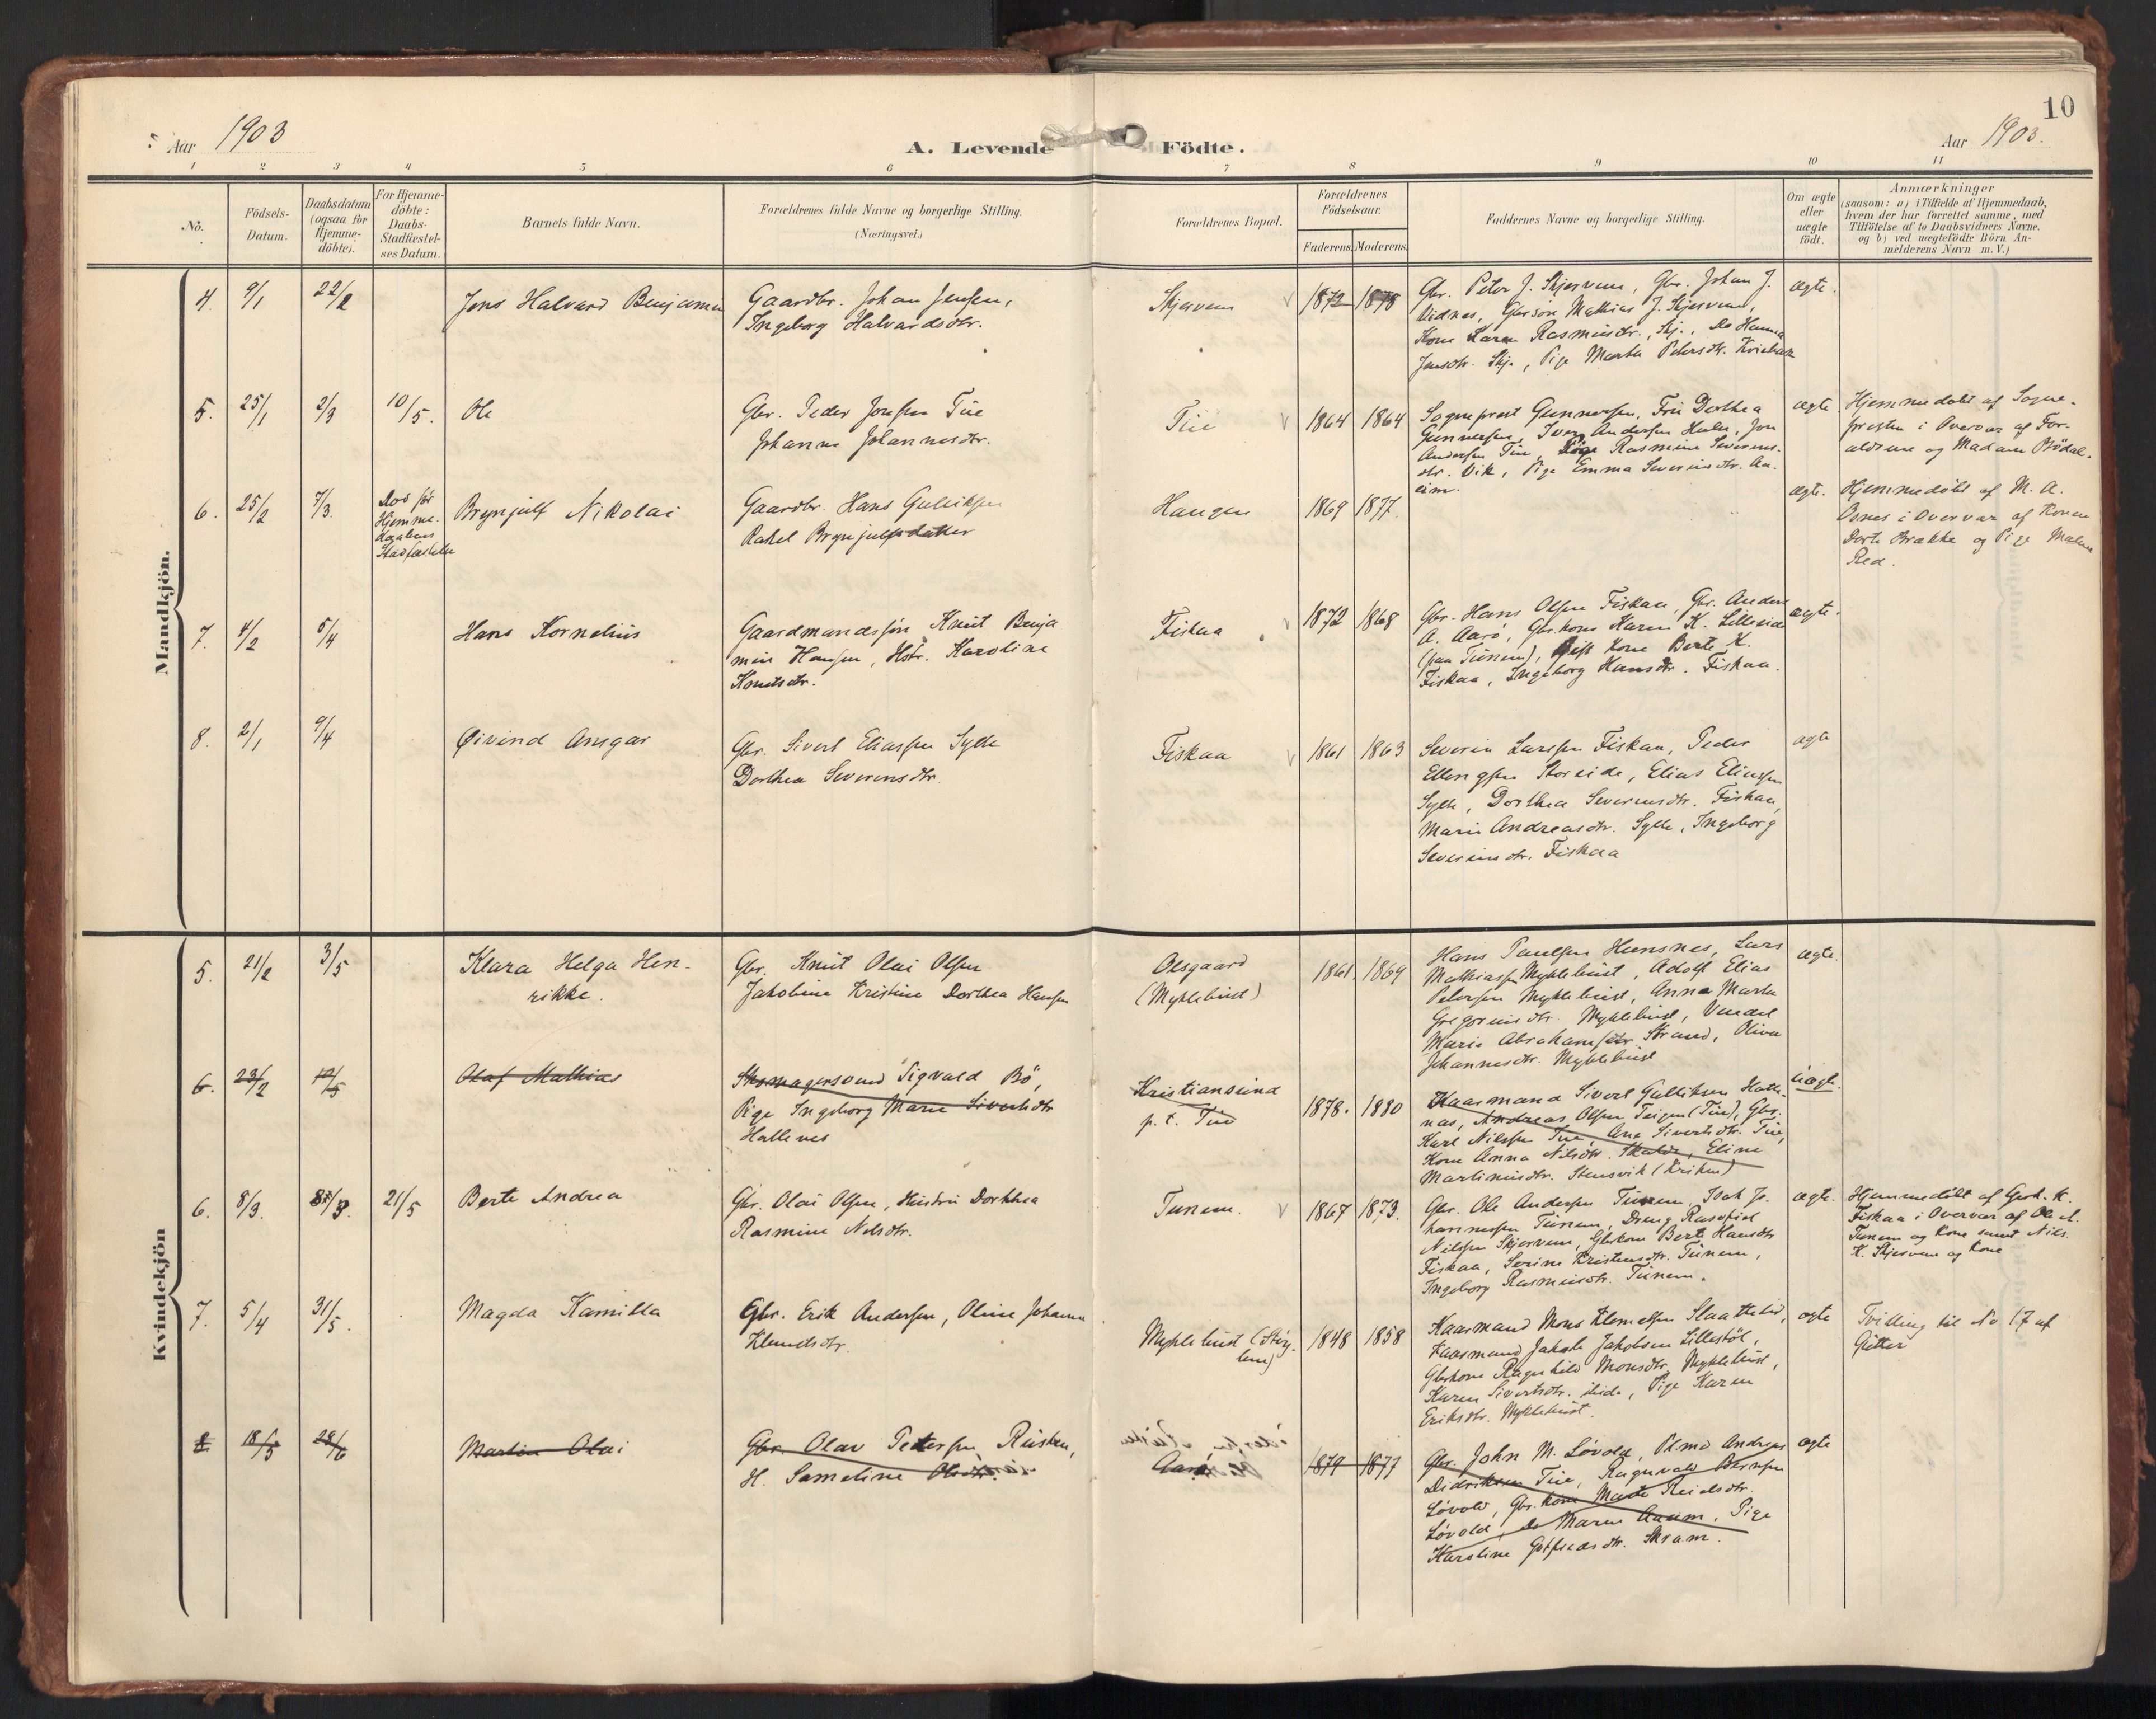 10
Aar 1903
A. Levende Födte.
Aar 1903.
1 2 3 4 5 6 7 8 9 10 11
No.
Födsels-
Datum.
Daabsdatum
(ogsaa for
Hjemme-
döbte).
For Hjemme-
döbte:
Daabs-
Stadfæstel-
ses Datum.
Barnets fulde Navn.
Forældrenes fulde Navne og borgerlige Stilling.
(Næringsvei.)
Forældrenes Bopæl.
Forældrenes
Födselsaar.
Faderens. Moderens.
Faddernes Navne og borgerlige Stilling.
Om ægte
eller
uægte
födt.
Anmærkninger
(saasom: a) i Tilfælde af Hjemmedaab,
hvem der har forrettet samme, med
Tilföielse af to Daabsvidners Navne.
og b) ved uægtefödte Börn An-
melderens Navn m. V.)
Mandkjön.
4. 9/1 22/2
Jens Halvard Benjamin
Gaardbr. Johan Jensen,
Ingeborg Halvardsdtr.
Skjervem
1872 1878
Gbr. Peter J. Skjervem, Gbr. Johan J.
Vidnes, Gbrsön Mathias J. Skjervem,
Kone Karen Rasmusdtr. Skj., Do Hanna
Jensdtr. Skj., Pige Marta Petersdtr.
ægte.
5. 25/1 2/3 10/5.
Ole
Gbr. Peder Jonsen Tue
Johanne Johannesdtr.
Tue
1864 1864
Sogneprest Gunnersen, Fru Dorthea
Gunnersen, Iver Andersen, Jon
Andersen Tue, Pige Rasmine Severins-
dtr. Vik, Pige Emma Severinsdtr. Au-
eim.
ægte
Hjemmedöbt af Sogne-
presten i Overvær af For-
ældrene og Madam Bödal.
6. 25/2 7/3.
Död för
Hjemme-
daabens
Stadfæstelse
Brynjulf Nikolai
Gaardbr. Hans Gulliksen
Rakel Brynjulfsdatter
Haugen
1869 1877.
ægte.
Hjemmedöbt af M. A.
Osnes i Overvær af Konen
Dorte Brække og Pige Malene
Red.
7. 4/2 5/4
Hans Kornelius
Gaardmandssön Knut Benja
min Hansen, Hstr. Karoline
Knutsdtr.
Fiskaa
1872 1868
Gbr. Hans Olsen Fiskaa, Gbr. Anders
A. Aarö, Gbr.kone Karen K. Lilleeide
(paa Tunem), Kone Berte K.
Fiskaa, Ingeborg Hansdtr. Fiskaa.
ægte.
8. 2/1 9/4
Øivind Ansgar
Gbr. Sivert Eliassen Sylte
Dorthea Severinsdtr.
Fiskaa
1861 1863
Severin Larssen Fiskaa, Peder
Ellengsen Storeide, Elias Eliassen
Sylte, Dorthea Severinsdtr. Fiskaa,
Marie Andreasdtr. Sylte, Ingeborg
Severinsdtr. Fiskaa
ægte
Kvindekjön
5. 21/2 3/5
Klara Helga Hen-
rikke.
Gbr. Knut Olai Olsen
Jakobine Kristine Dorthea Hansen
Olsgaard
(Myklebust)
1861. 1869
Hans Paulsen Hunsnes, Lars
Mathiassen Myklebust, Adolf Elias
Petersen Myklebust, Anna Marta
Gregoriusdtr. Myklebust, Vendel
Marie Abrahamsdtr. Strand, Oliva
Johannesdtr. Myklebust
ægte.
6. 23/2 12/5
Olaf Mathias
Skomagersvend Sigvald Bö,
Pige Ingeborg Marie Sivertsdtr
Hallenes
Kristiansund
p. t. Tue
1878. 1880
Kaarmand Sivert Gulliksen Halle-
nes, Andreas Olsen Teigen (Tue), Gbr.
Karl Nilsen Tue, Ane Sivertsdtr. Tue,
Kone Anna Nilsdtr. Eline
Martinusdtr. Stensvik (Kriken)
Uægte.
6. 8/3. 8/3. 21/5
Berte Andrea
Gbr. Olai Olsen, Hustru Dorthea
Rasmine Nilsdtr.
Tunem.
1867 1873.
Gbr. Ole Andersen Tunem, Isak Jo-
hannessen Tunem, Dreng Rasofiel
Nilsen Skjervem, Gbrkone Berte Hansdtr
Fiskaa, Serine Kristensdtr. Tunem,
Ingeborg Rasmusdtr. Tunem.
ægte.
Hjemmedöbt af Gert. K.
Fiskaa i Overvær af Ole A.
Tunem og Kone samt Nils
K. Skjervem og Kone
7. 5/4 31/5.
Magda Kamilla
Gbr. Erik Andersen, Oline Johanne
Klemetsdtr.
Myklebust (Stöy-
len)
1848 1858
Kaarmand Mons Klemetsen Slaattelid,
Kaarmand Jakob Jakobsen Lillestöl,
Gbrkone Ragnhild Monsdtr. Myklebust,
Karen Sivertsdtr. ibid., Pige Karen
Eriksdtr. Myklebust.
ægte
Tvilling til No 17 af
Gutter
8 18/5 28/6
Martin Olai
Gbr. Olav Petersen Rusten,
H. Sameline Olsdtr.
Aarö
1879 1877
Gbr. John M. Lövold, Olmo Andreas
Didriksen Tue, Ragnvald Berntsen
Lövold, Gbr. kone Marte Reiersdtr.
Lövold, do Maren Aaum, Pige
Karoline Gotfredsdtr. Skram.
ægte